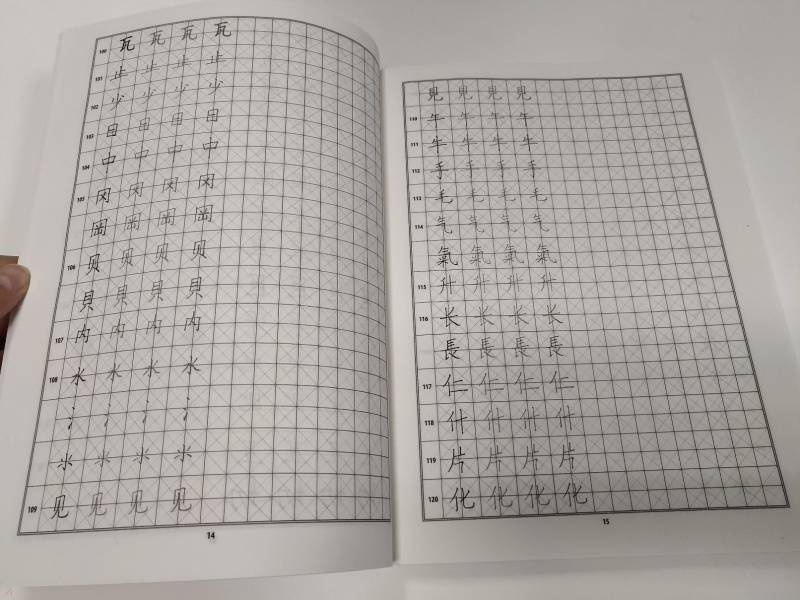 100 瓦 瓦 瓦 瓦
101 止 止 止 止
102 少 少 少 少
103 日 日 日 日
104 中 中 中 中
105 冈 冈 冈 冈
岡 岡 岡 岡
106 贝 贝 贝 贝
貝 貝 貝 貝
107 内 内 内 内
108 水 水 水 水
氵 氵 氵 氵
氺 氺 氺 氺
109 见 见 见 见
14
見 見 見 見
110 午 午 午 午
111 牛 牛 牛 牛
112 手 手 手 手
113 毛 毛 毛 毛
114 气 气 气 气
氣 氣 氣 氣
115 升 升 升 升
116 长 长 长 长
長 長 長 長
117 仁 仁 仁 仁
118 什 什 什 什
119 片 片 片 片
120 化 化 化 化
15